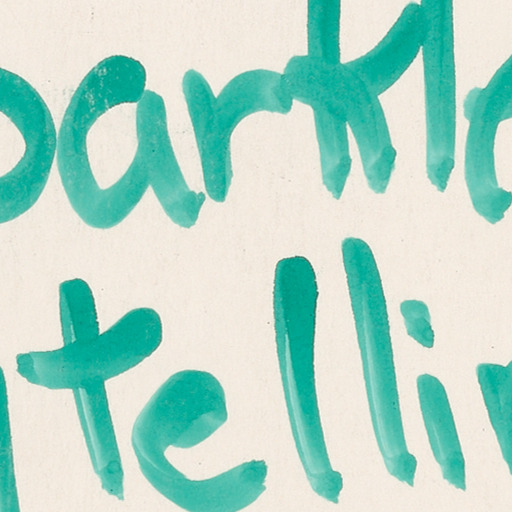 parkl
telli